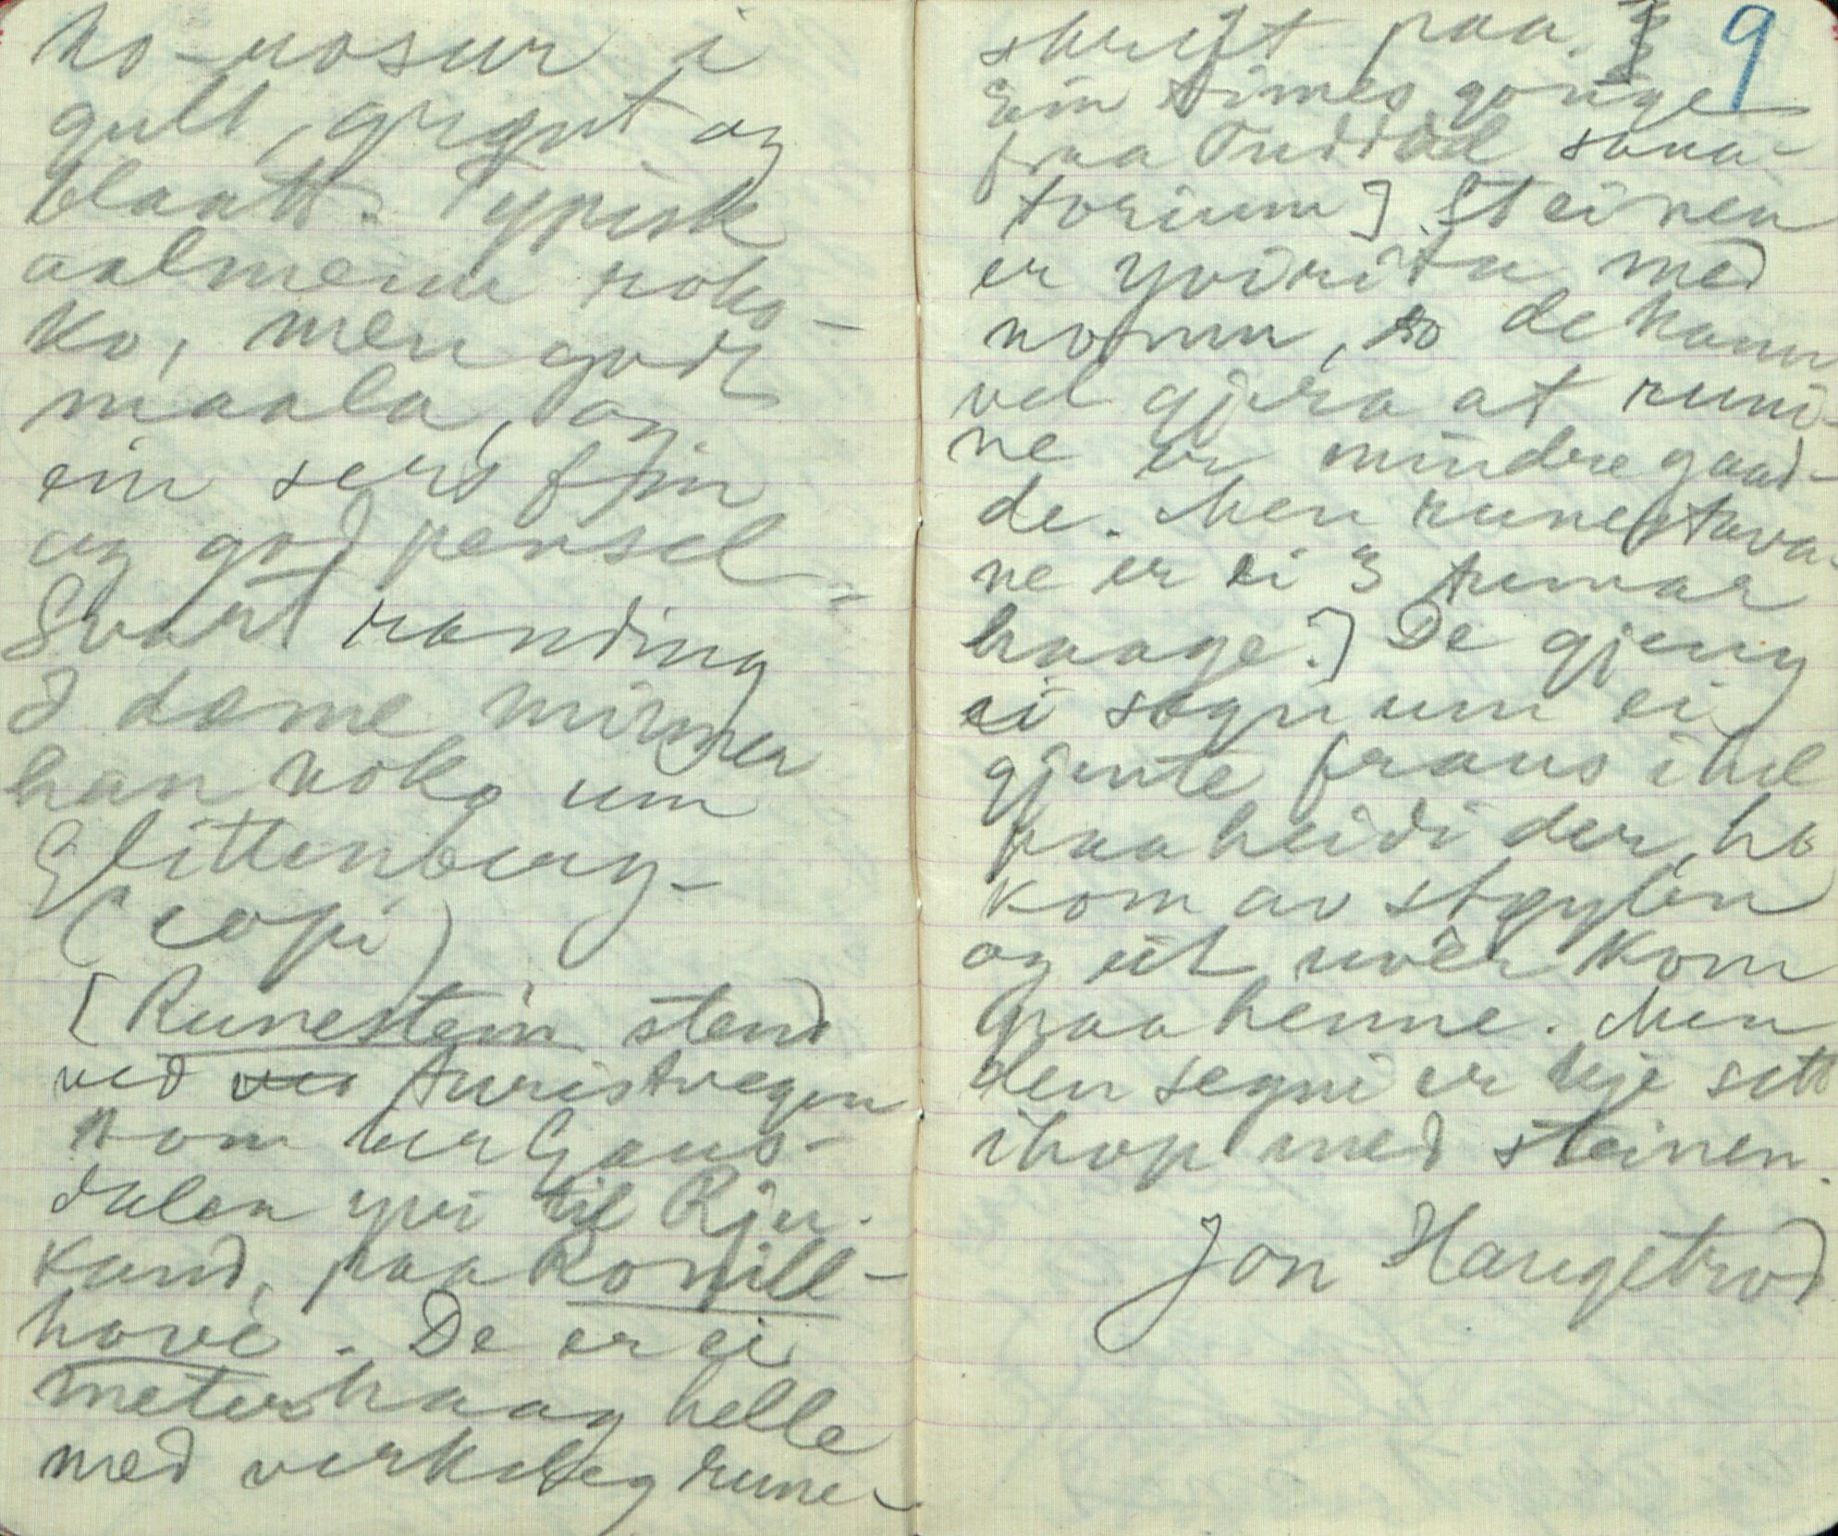 ko-rosur i
gult, grønt og
blaatt. Typisk
aalmenn roko-
ko, men godt
maala, og
ein sers fin
og god pensel-
Svart randing
I dame minner
han noko um
Glittenberg-
(copi)
[Runestein stend
ved ved turistvegen
som ber Gaus-
dalen yvi til Rju-
kand, paa Bonill-
hove. De er ei
meterhaag helle
med verkeleg rune-
skrift paa. [
Ein times gonge
fraa Tuddal sana-
torium] Steinen
er yvirita med
nomnn, so de kann
vel gjera at runi-
ne er mindre gaad-
de. Men runestava-
ne er ei 3 tumar
haage.] De gjeng
ei sogn um ei
gjente fraus ihel
paa heidi der, ho
kom av støylen
og eit uvêr kom
paa henne. Men
den segni er kje sett
ihop med steinen.
Jon Haugetrod
9